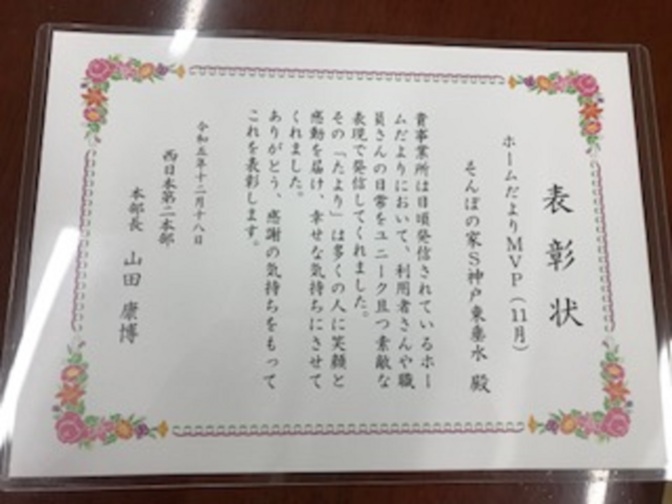 表彰状
ホームだよりMVP(11月)
そんぽの家S神戸東垂水 殿
貴事業所は日頃発信されているホー
ムだよりにおいて、利用者さんや職
員さんの日常をユニーク且つ素敵な
表現で発信してくれました。
その「たより」は多くの人に笑顔と
感動を届け、幸せな気持ちにさせて
くれました。
ありがとう、感謝の気持ちをもって
これを表彰します。
令和五年十二月十八日
西日本第二本部
本部長 山田 康博